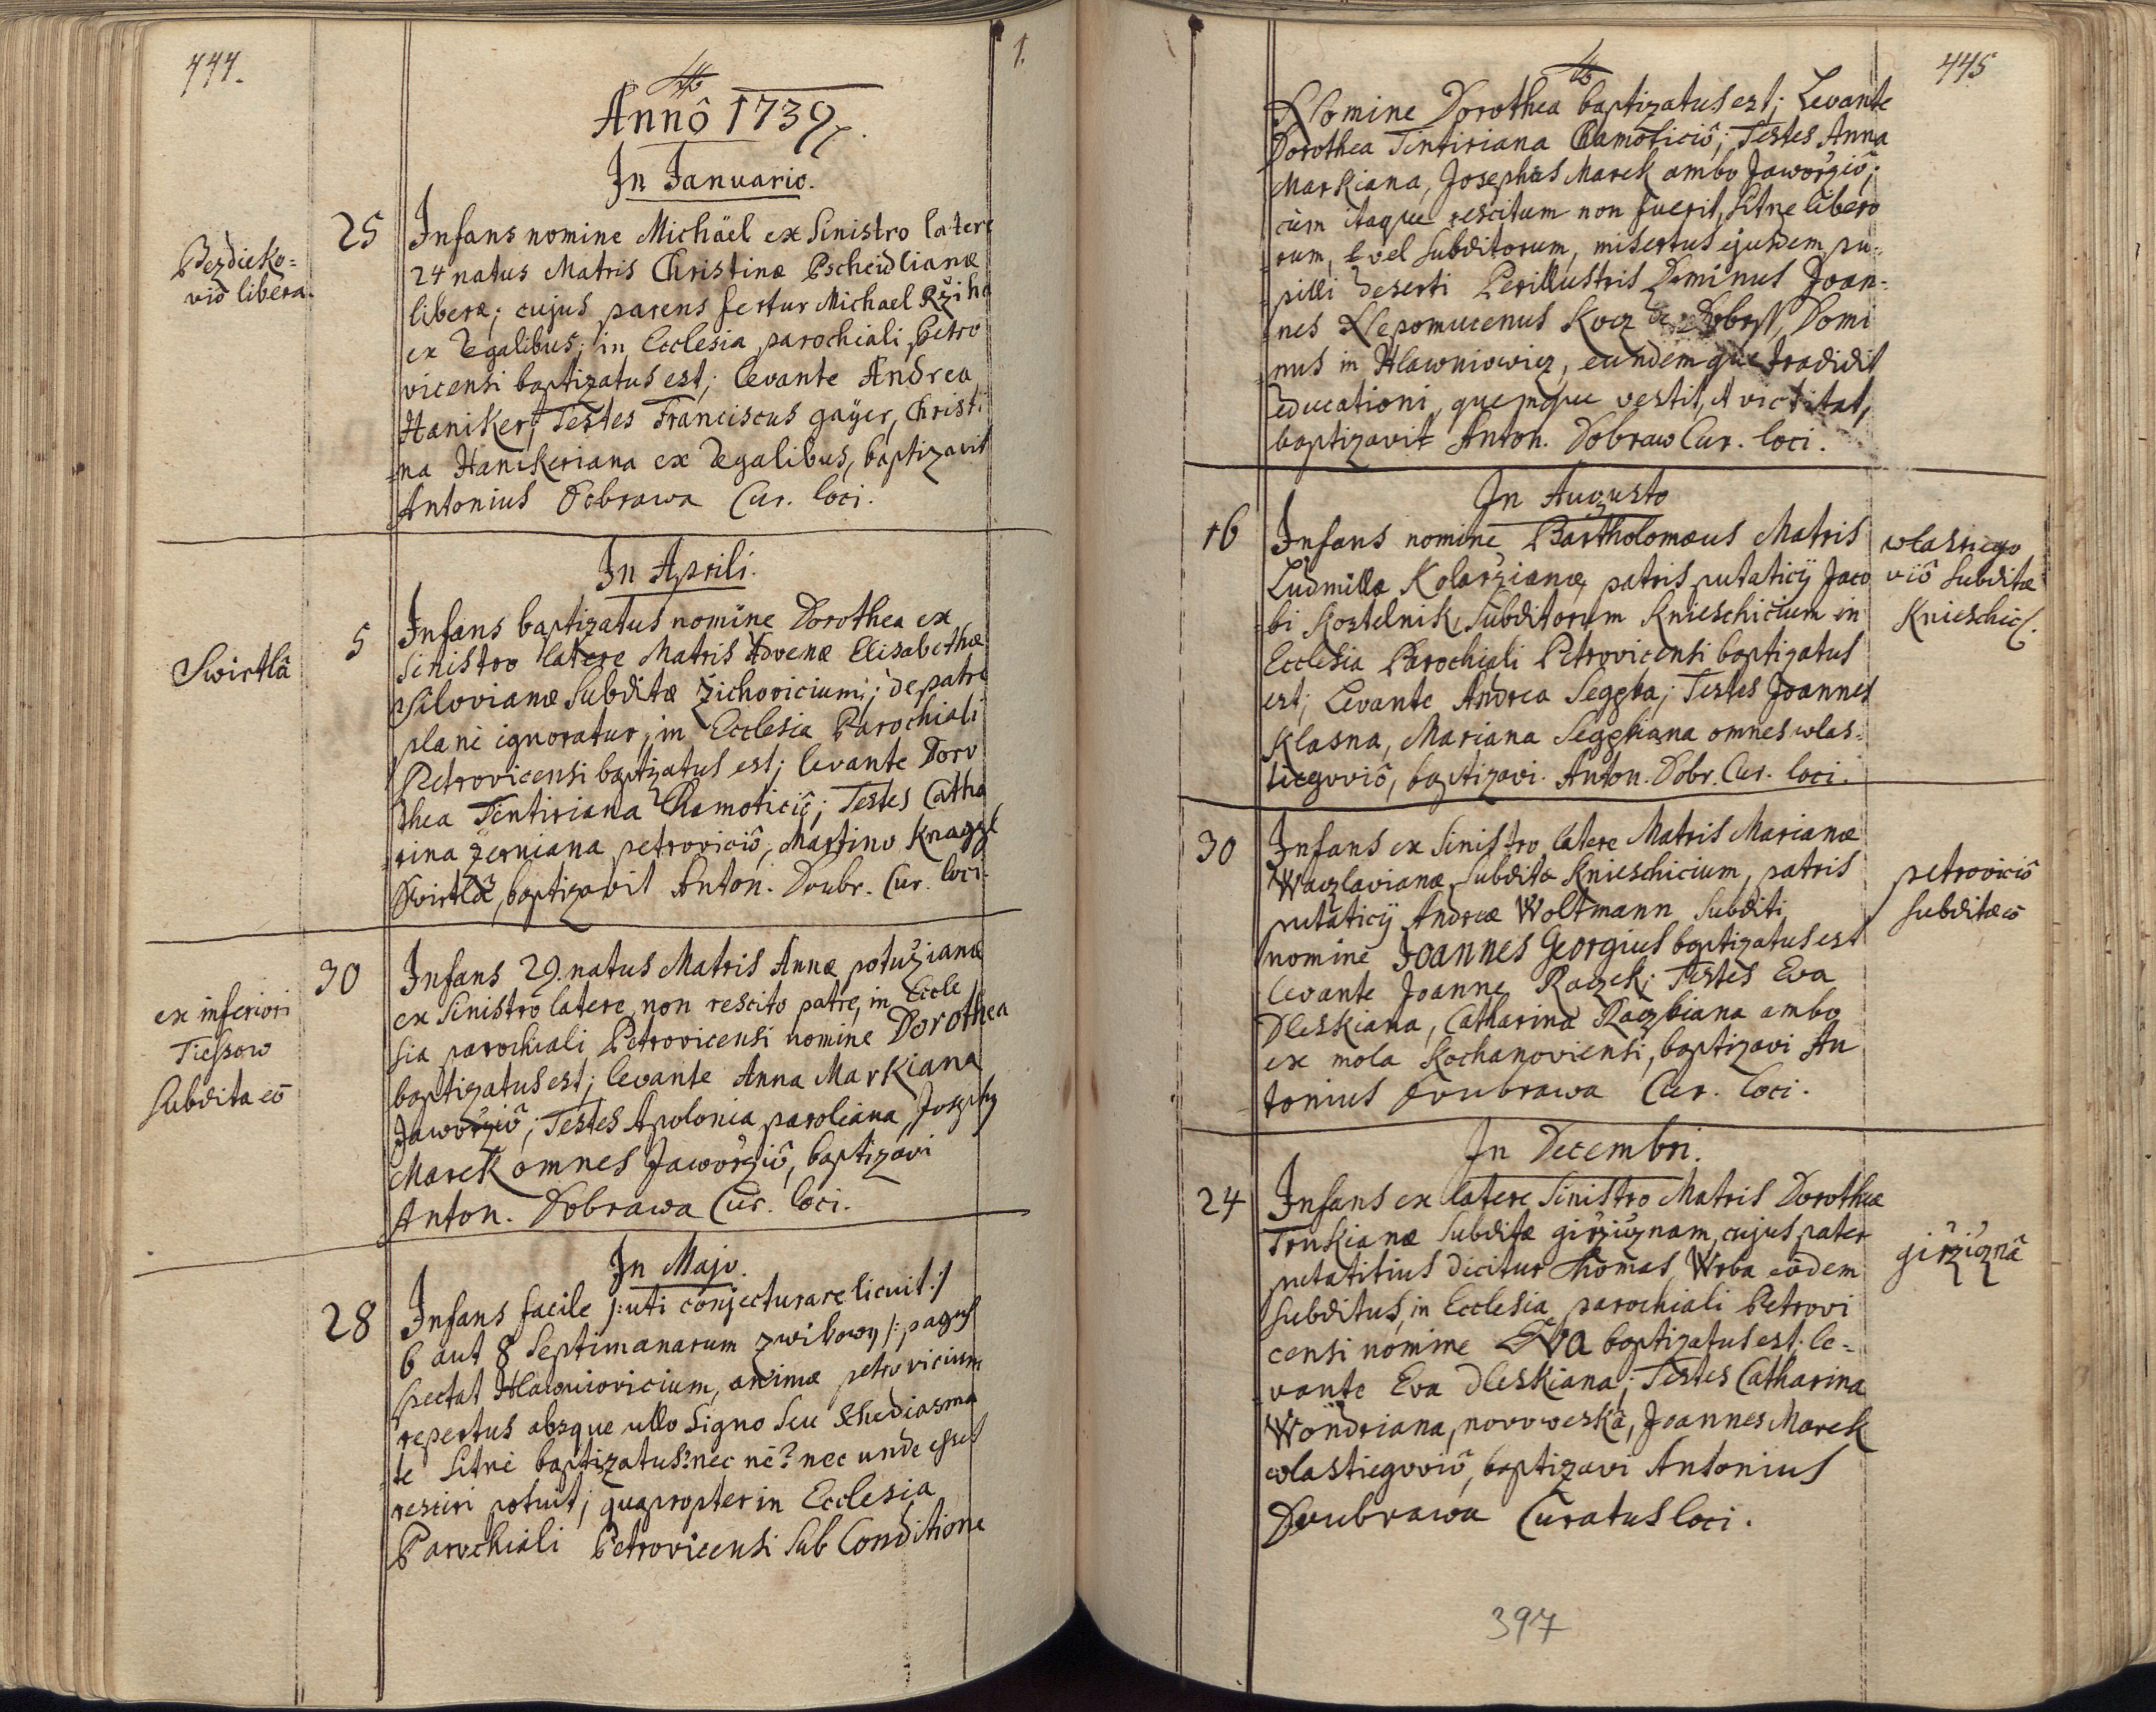 444.
1.
Annô 1739
In Januario.
Bezdieko=
viô libera.
25
Infans nomine Michäel ex Sinistro latere
24 natus Matris Christinæ Pscheidlianæ
liberæ; cujus parens fertur Michael Ržiha
ex Regalibus; in Ecclesia parochiali Petro
vicensi baptizatus est; levante Andrea
Haniker; Testes Franciscus gaÿer, Christi
=na Hanikeriana ex Regalibus, baptizavit
Antonius Dobrawa Cur. loci.
In Aprili.
Swirtlâ
5
Infans baptizatus nomine Dorothea ex
Sinistro latere Matris Advenæ Elisabethæ
Silovianæ Subditæ Žichovicium; de patre
plane ignoratur, in Ecclesia Parochiali
Petrovicensi baptizatus est; levante Doro
thea Tintiriana Chamoticiô; Testes Catha
=rina Zerniana petroviciô, Martino
Swirtlâ, baptizavit Anton. Doubr. Cur. loci.
ex inferiori
Tiessow
Subdita eô
30
Infans 29. natus Matris Annæ potužianæ
ex Sinistro latere, non rescito patre, in Eccle
sia parochiali Petrovicensi nomine Dorothea
baptizatus est; levante Anna Markiana
Jaworžiô; Testes Apolonia paroliana, Joseph
Marek omnes Jaworžiô, baptizavi
Anton. Dobrawa Cur. loci.
In Majo.
28
Infans facile /: uti conjecturare licuit :/
6 aut 8 Septimanarum zwibowy /: pagus
spectat Hlawniovicium, animæ petrovicium
repertus absque ullo Signo Seu Schediasma
=te Sitne baptizatus? nec nè? nec unde esset
resciri potuit; quapropter in Ecclesia
Parochiali Petrovicensi Sub Conditione
445
Nomine Dorothea baptizatus est; Levante
Dorothea Tintiriana Chamoticiô; Testes Anna
Markiana, Josephus Marek ambo Jaworžiô;
cùm itaque rescitum non fuerit, Sitne libero
rum, vel Subditorum, misertus ejusdem pu=
pilli deserti Perillustris Dominus Joan=
nes Nepomucenus Kocz de Dobrss, Domi
nus in Hlawniowicz, eundemque tradidit
educationi, quemque vestit, et victitat,
baptizavit Anton. Dobraw Cur. loci.
In Augusto
16
Infans nomine Bartholomæus Matris
Ludmillæ Kolaržianæ, patris putaticij Jaco
=bi Kostelnik, Subditorum Knieschicium in
Ecclesia Parochiali Petrovicensi baptizatus
est; Levante Andrea Seggba; Testes Joannes
Klasna, Mariana Seggbiana omnes wlas=
tiegoviô, baptizavi. Anton. Dobr. Cur. loci.
wlastiego
viô Subditæ
Knieschic.
30
Infans ex Sinistro latere Matris Marianæ
Waczlavianæ Subditæ Knieschicium, patris
putaticij Andreæ Woltmann Subditi,
nomine Joannes Georgius baptizatus est
levante Joanne Raczek; Testes Eva
Dleskiana, Catharina Raczkiana ambo
ex mola Kochanoviensi, baptizavi An
tonius Doubrawa Cur. loci.
petroviciô
Subditæ eô
In Decembri.
24
Infans ex latere Sinistro Matris Dorotheæ
Trnkianæ Subditæ giržiznam, cujus pater
putatitius dicitur Thomas Wrba eôdem
Subditus, in Ecclesia parochiali Petrovi
censi nomine Eva baptizatus est; le=
vante Eva Dleskiana; Testes Catharina
Wondriana, novoweskâ, Joannes Marek
wlastiegoviô, baptizavi Antonius
Doubrawa Curatus loci.
giržiznâ
397